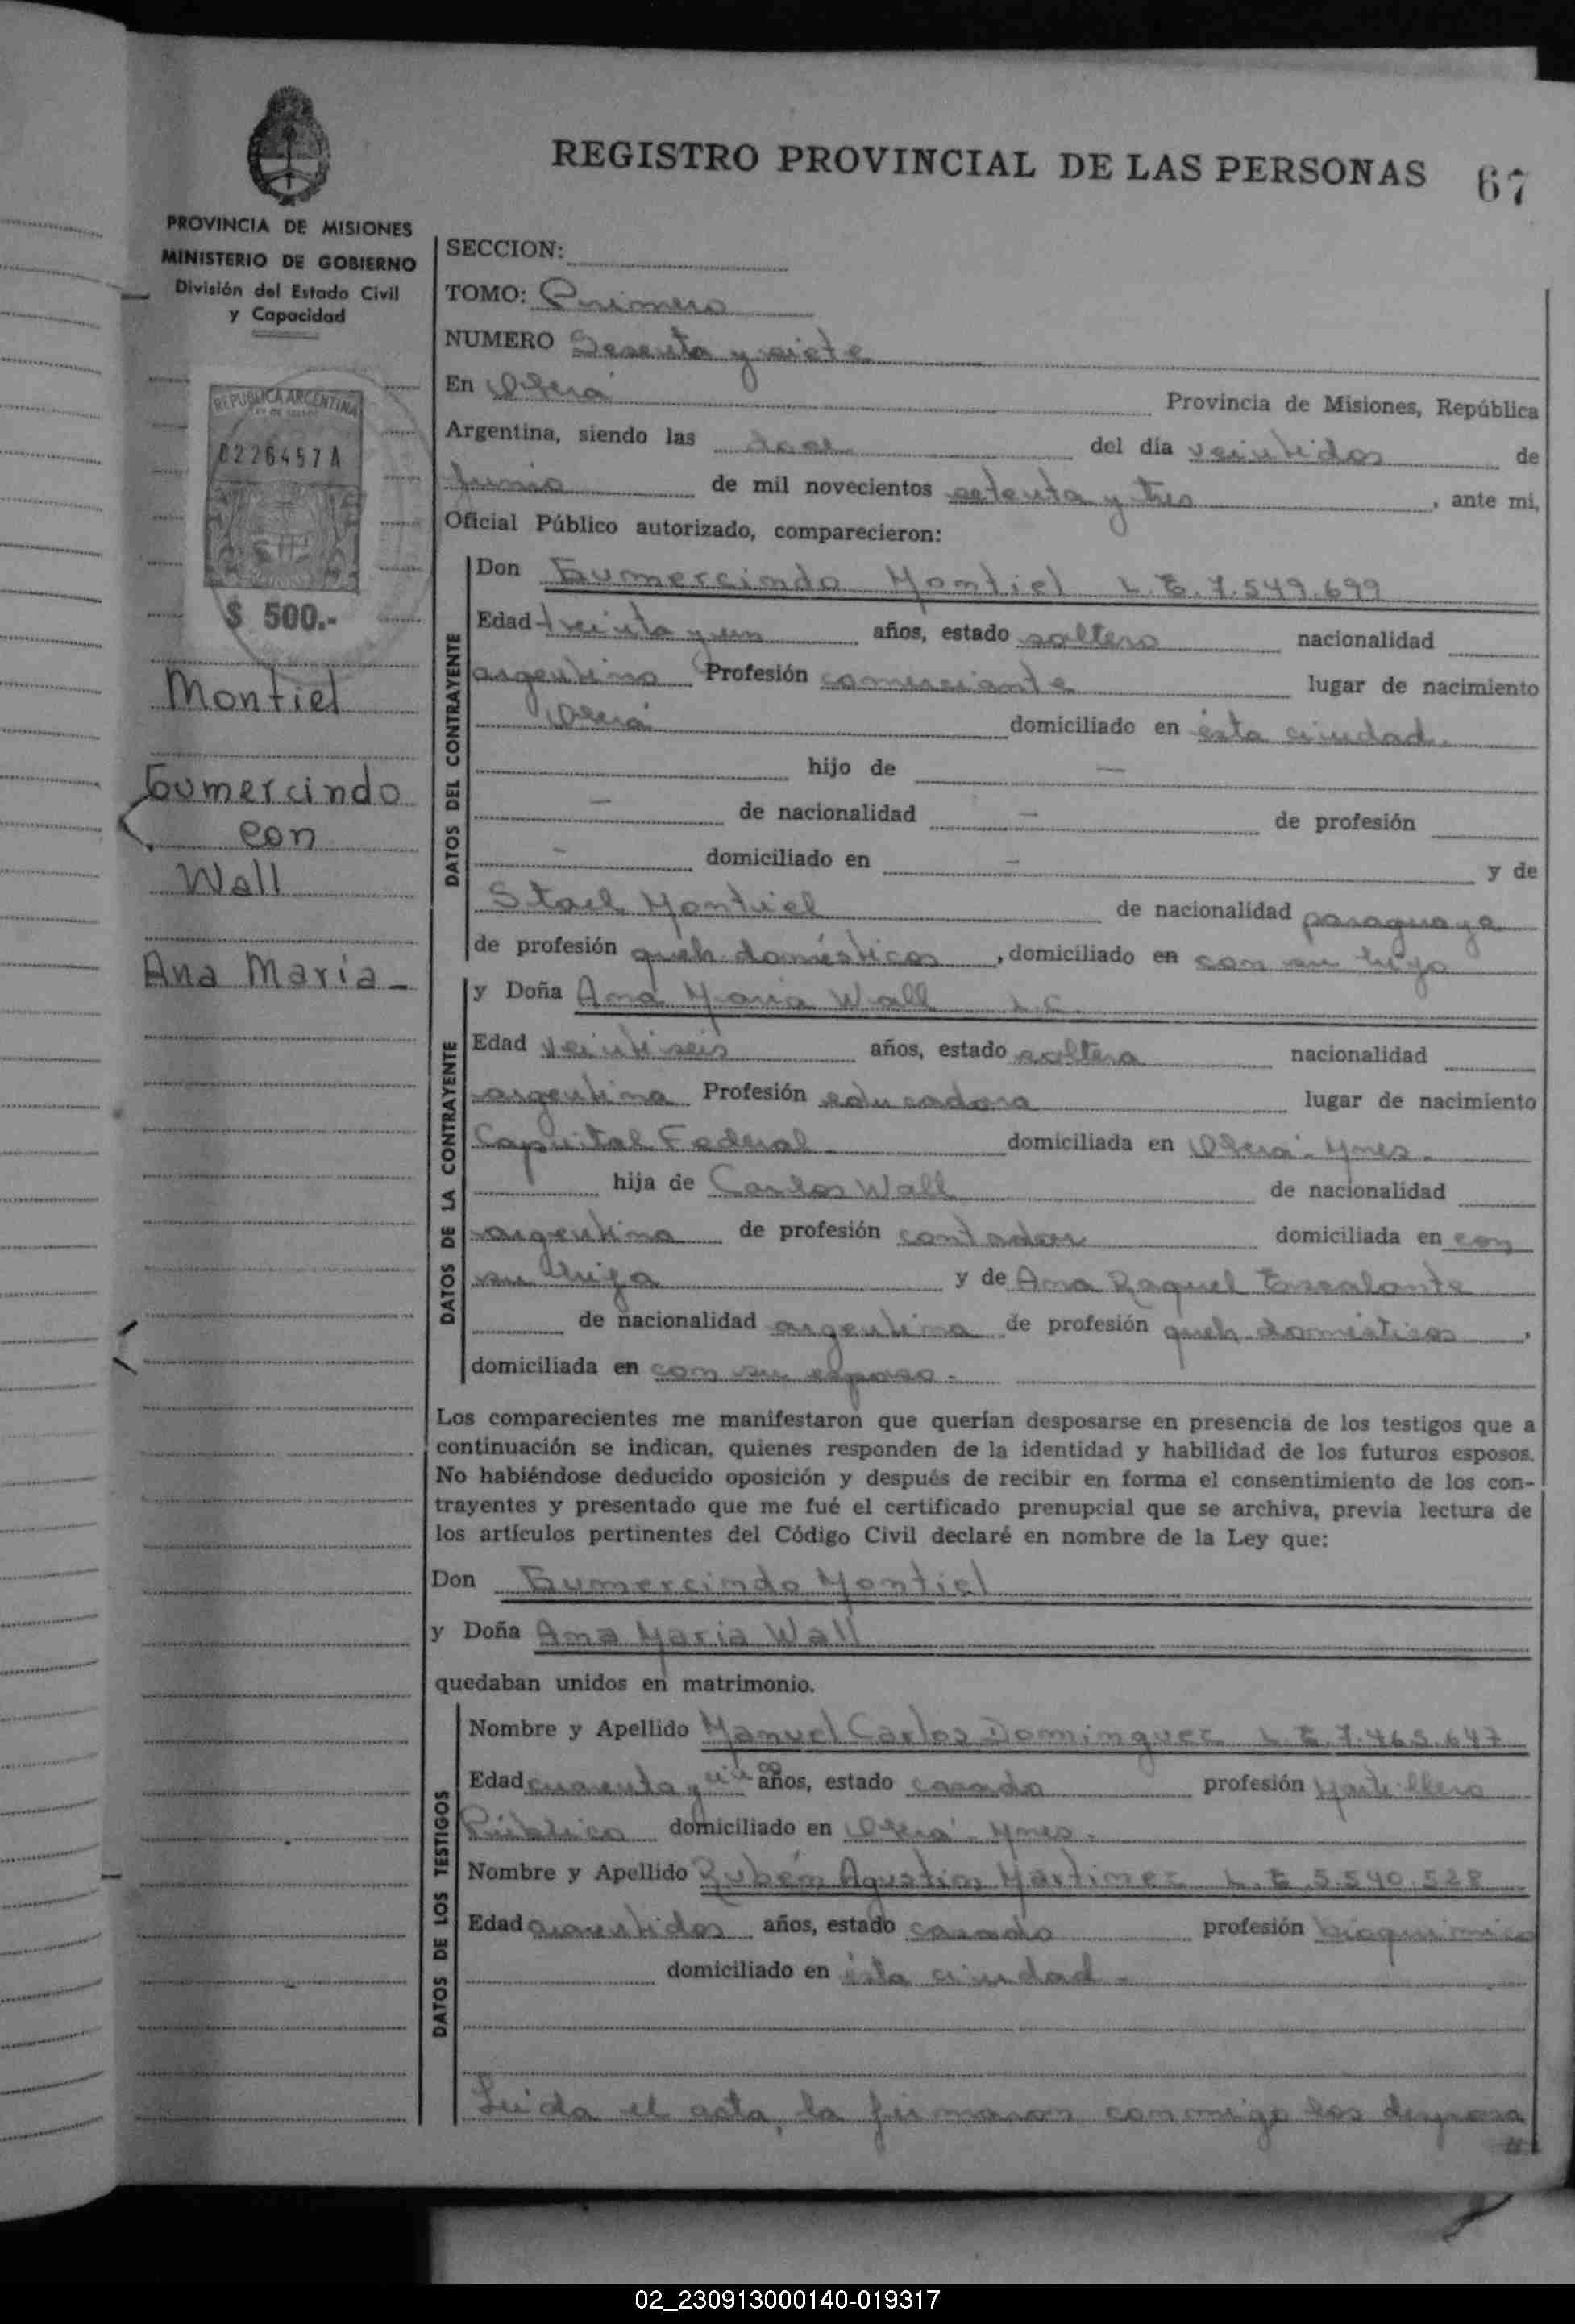 REGISTRO PROVINCIAL DE LAS PERSONAS 67
PROVINCIA DE MISIONES
MINISTERIO DE GOBIERNO
División del Estado Civil
y Capacidad
REPUBLICA ARGENTINA
0226457A
$ 500.-
Montiel
Gumercindo
con
Wall
Ana Maria -
SECCION:
TOMO: Primero
NUMERO Sesenta y siete
En Oberá Provincia de Misiones, República
Argentina, siendo las doce del día veintidos de
Junio de mil novecientos setenta y tres, ante mi,
Oficial Público autorizado, comparecieron:
DATOS DEL CONTRAYENTE
Don Gumercindo Montiel L.E. 7.549.699
Edad treinta y un años, estado soltero nacionalidad
argentino Profesión comerciante lugar de nacimiento
Oberá domiciliado en ésta ciudad.
hijo de —
— de nacionalidad — de profesión
— domiciliado en — y de
Stael Montiel de nacionalidad paraguaya
de profesión queh. domésticos, domiciliado en con su hijo
DATOS DE LA CONTRAYENTE
y Doña Ana Maria Wall L.C.
Edad veintiseis años, estado soltera nacionalidad
argentina Profesión educadora lugar de nacimiento
Capital Federal domiciliada en Oberá - Mnes.
hija de Carlos Wall de nacionalidad
argentina de profesión contador domiciliada en con
su hija y de Ana Raquel Escalante
de nacionalidad argentina de profesión queh. domésticos,
domiciliada en con su esposo.-
Los comparecientes me manifestaron que querían desposarse en presencia de los testigos que a
continuación se indican, quienes responden de la identidad y habilidad de los futuros esposos.
No habiéndose deducido oposición y después de recibir en forma el consentimiento de los con-
trayentes y presentado que me fué el certificado prenupcial que se archiva, previa lectura de
los artículos pertinentes del Código Civil declaré en nombre de la Ley que:
Don Gumercindo Montiel
y Doña Ana Maria Wall
quedaban unidos en matrimonio.
DATOS DE LOS TESTIGOS
Nombre y Apellido Manuel Carlos Dominguez L.E. 7.465.647
Edad cuarenta y años, estado casado profesión Martillero
Público domiciliado en Oberá - Mnes.
Nombre y Apellido Rubén Agustin Martinez L.E. 5.540.528
Edad cuarentidos años, estado casado profesión bioquimico
domiciliado en ésta ciudad -
Leida el acta, la firmaron conmigo los desposa
//
02_230913000140-019317